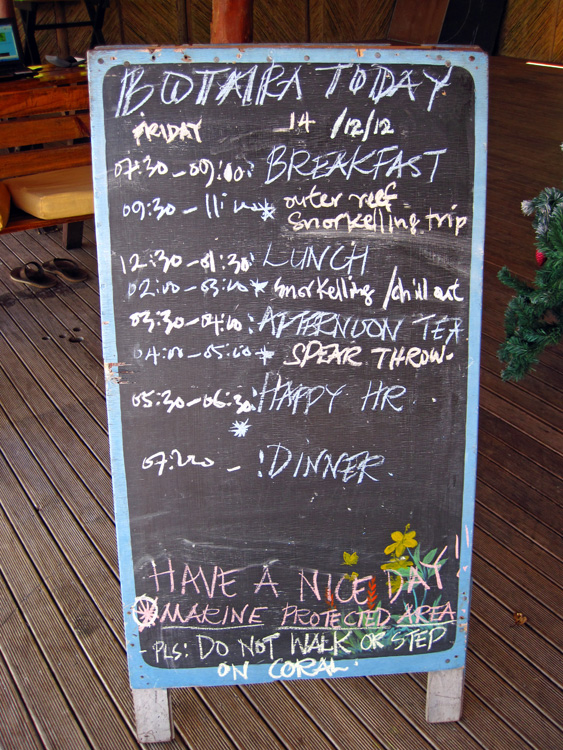 BOTAIRA TODAY
FRIDAY 14/12/12
07:30-09:00: BREAKFAST
09:30-11:00* outer reef
snorkelling trip
12:30-01:30: LUNCH
02:00-03:00* snorkelling/chill out
03:30-04:00: AFTERNOON TEA
04:00-05:00* SPEAR THROW.
05:30-06:30: HAPPY HR
*
07:00 - : DINNER.
HAVE A NICE DAY!!
MARINE PROTECTED AREA
- PLS: DO NOT WALK OR STEP
ON CORAL.